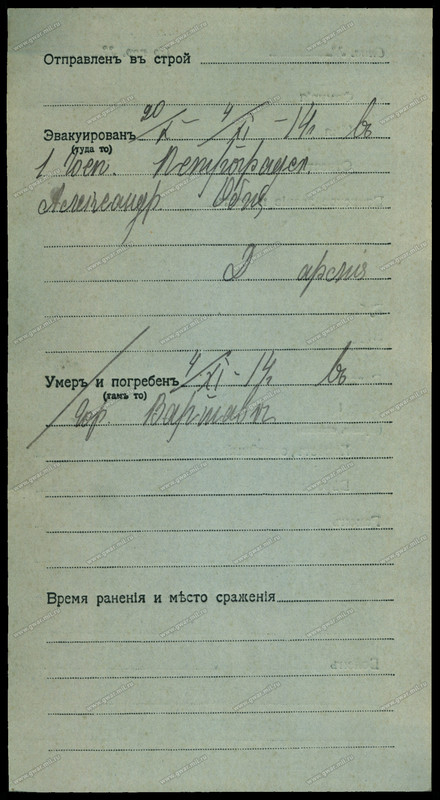 Отправленъ въ строй
Эвакуированъ 20/X - 4/XI - 14г. въ
(туда то)
1 Госп. Петроградск.
Александр Общ
Д армія
Умеръ и погребенъ 4/XI - 14г въ
(тамъ то)
гор. Варшавѣ
Время раненія и мѣсто сраженія